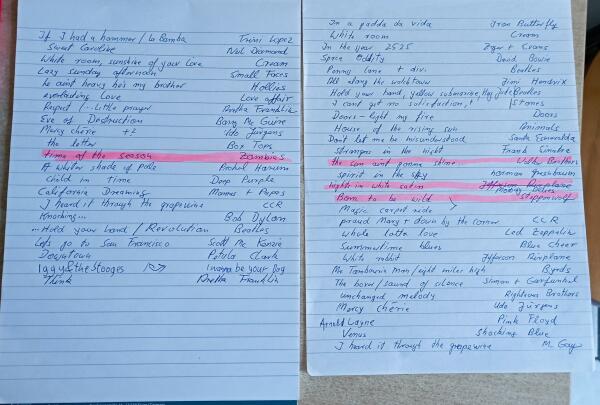 If I had a hammer / la Bamba Trini Lopez
Sweet Caroline Neil Diamond
White room, sunshine of your love Cream
Lazy sunday afternoon Small Faces
He aint heavy he's my brother Hollies
everlasting Love Love affair
Respect /... Little prayer Aretha Franklin
Eve of Destruction Barry Mc Guire
Mercy cherie +? Udo Jürgens
the letter Box Tops
time of the season Zombies
A whiter shade of Pale Procol Harum
Child in Time Deep Purple
California Dreaming Mamas + Papas
I heard it through the grapevine CCR
Knocking... Bob Dylan
... Hold your hand / Revolution Beatles
Lets go to San Francisco Scott Mc Kenzie
Downtown Petula Clark
Iggy & the Stooges I wanna be your dog
Think Aretha Franklin
In a gadda da vida Iron Butterfly
White room Cream
In the year 2525 Zager + Evans
Space Oddity David Bowie
Penny lane + div. Beatles
All along the watchtower Jimi Hendrix
Hold your hand, yellow submarine, Hey Jude Beatles
I cant get no satisfaction, Stones
Doors - light my fire Doors
House of the rising sun Animals
Dont let me be misunderstood Santa Esmeralda
Strangers in the night Frank Sinatra
the sun aint gonna shine Walker Brothers
spirit in the sky norman greenbaum
nights in white satin Jefferson Airplane Moody Blues
Born to be wild Steppenwolf
Magic carpet ride
proud Mary + down by the corner CCR
whole lotta love Led Zeppelin
Summertime blues Blue Cheer
White rabbit Jefferson Airplane
Mr Tambourin Man / eight miles high Byrds
The boxer / sound of silence Simon + Garfunkel
unchanged melody Righteous Brothers
Mercy Chérie Udo Jürgens
Arnold Layne Pink Floyd
Venus Shocking Blue
I heard it through the grapevine M Gay